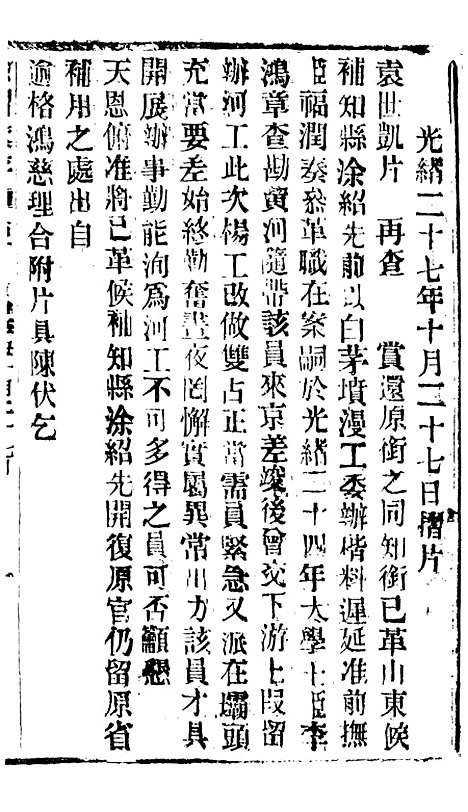 光緒二十七年十月二十七日摺片
袁世凱片　再查　賞還原銜之同知銜已革山東候
補知縣涂紹先前以白茅墳漫工委辦楷料遲延准前撫
臣福潤奏參革職在案嗣於光緒二十四年大學士臣李
鴻章查勘黃河隨帶該員來京差竣後曾交下游上叚留
辦河工此次楊工改做雙占正當需員緊急又派在壩頭
充當要差始終勤奮晝夜罔懈實屬異常出力該員才具
開展辦事勤能洵爲河工不可多得之員可否籲懇
天恩俯准將已革候補知縣涂紹先開復原官仍留原省
補用之處出自
逾格鴻慈理合附片具陳伏乞